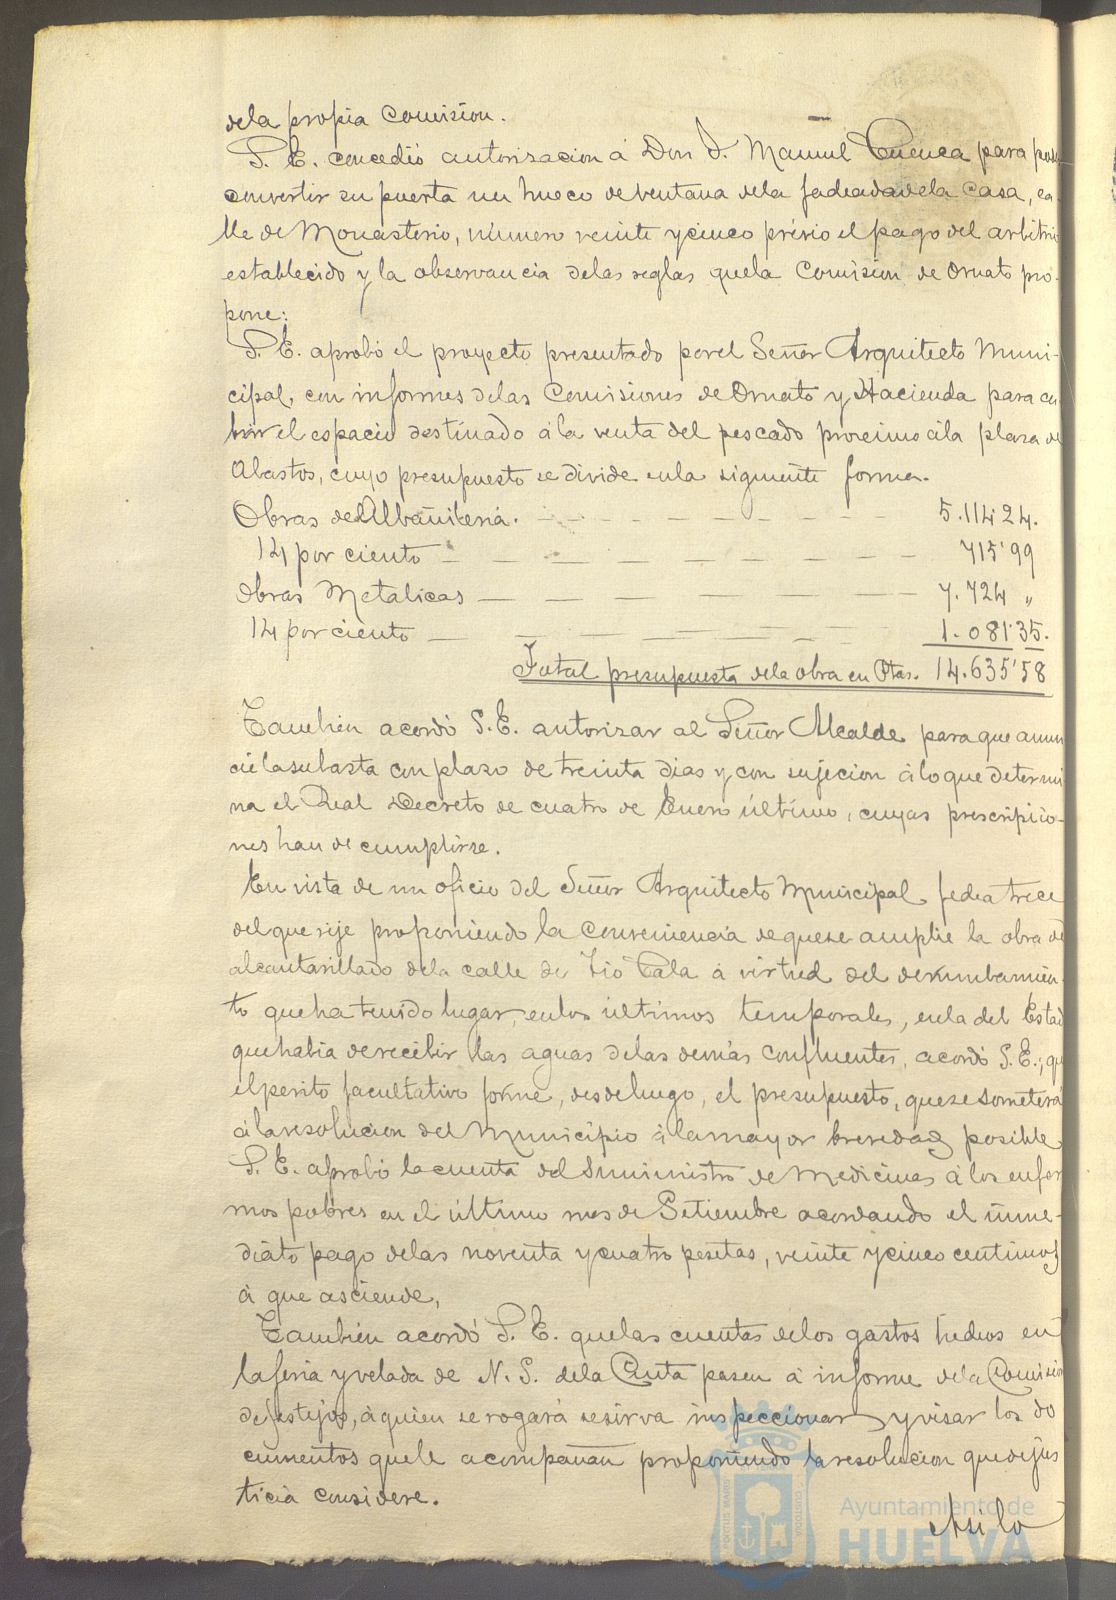 dela propia Comision.
S. E. concedió autorizacion á Don J. Manuel Cuenca para
convertir en puerta un hueco de ventana dela fachada dela Casa, ca-
lle de Monasterio, número veinte y cinco prévio el pago del arbitrio
establecido y la observancia delas reglas quela Comision de Ornato pro-
pone:
S. E. aprobó el proyecto presentado porel Señor Arquitecto Muni-
cipal, con informes delas Comisiones de Ornato y Hacienda para cu
brir el espacio destinado á la venta del pescado procsimo ála plaza de
Abastos, cuyo presupuesto se divide enla siguiente forma.
Obras de Albañileria. 5.114'24.
14 por ciento 715'99
Obras Metalicas 7.724 "
14 por ciento 1.081'35.
Total presupuesto dela obra en Ptas. 14.635'58
Tambien acordó S. E. autorizar al Señor Alcalde para que anun
cie la subasta con plazo de treinta dias y con sujecion á lo que determi
na el Real Decreto de cuatro de Enero último, cuyas prescripcio-
nes han de cumplirse.
En vista de un oficio del Señor Arquitecto Municipal, fecha trece
del que rije proponiendo la conveniencia de quese amplie la obra de
alcantarillado dela calle de Tio Pala á virtud del derrumbamien-
to que ha tenido lugar, enlos últimos temporales, enla del Estad
que habia de recibir las aguas delas demás confluentes, acordó S. E., qe
el perito facultativo forme, desde luego, el presupuesto, que se someterá
á la resolucion del Municipio á la mayor brevedad posible
S. E. aprobó la cuenta del Suministro de Medicinas á los enfer
mos pobres en el último mes de Setiembre acordando el inme-
diato pago delas noventa y cuatro pesetas, veinte y cinco centimos
á que asciende,
Tambien acordó S. E. quelas cuentas delos gastos hechos en
la feria y velada de N. S. dela Cinta pasen á informe dela Comision
de festejos, á quien se rogará se sirva inspeccionar y visar los do
cumentos quele acompañan proponiendo la resolucion que de jus
ticia considere.
Asilo
Ayuntamiento de
HUELVA